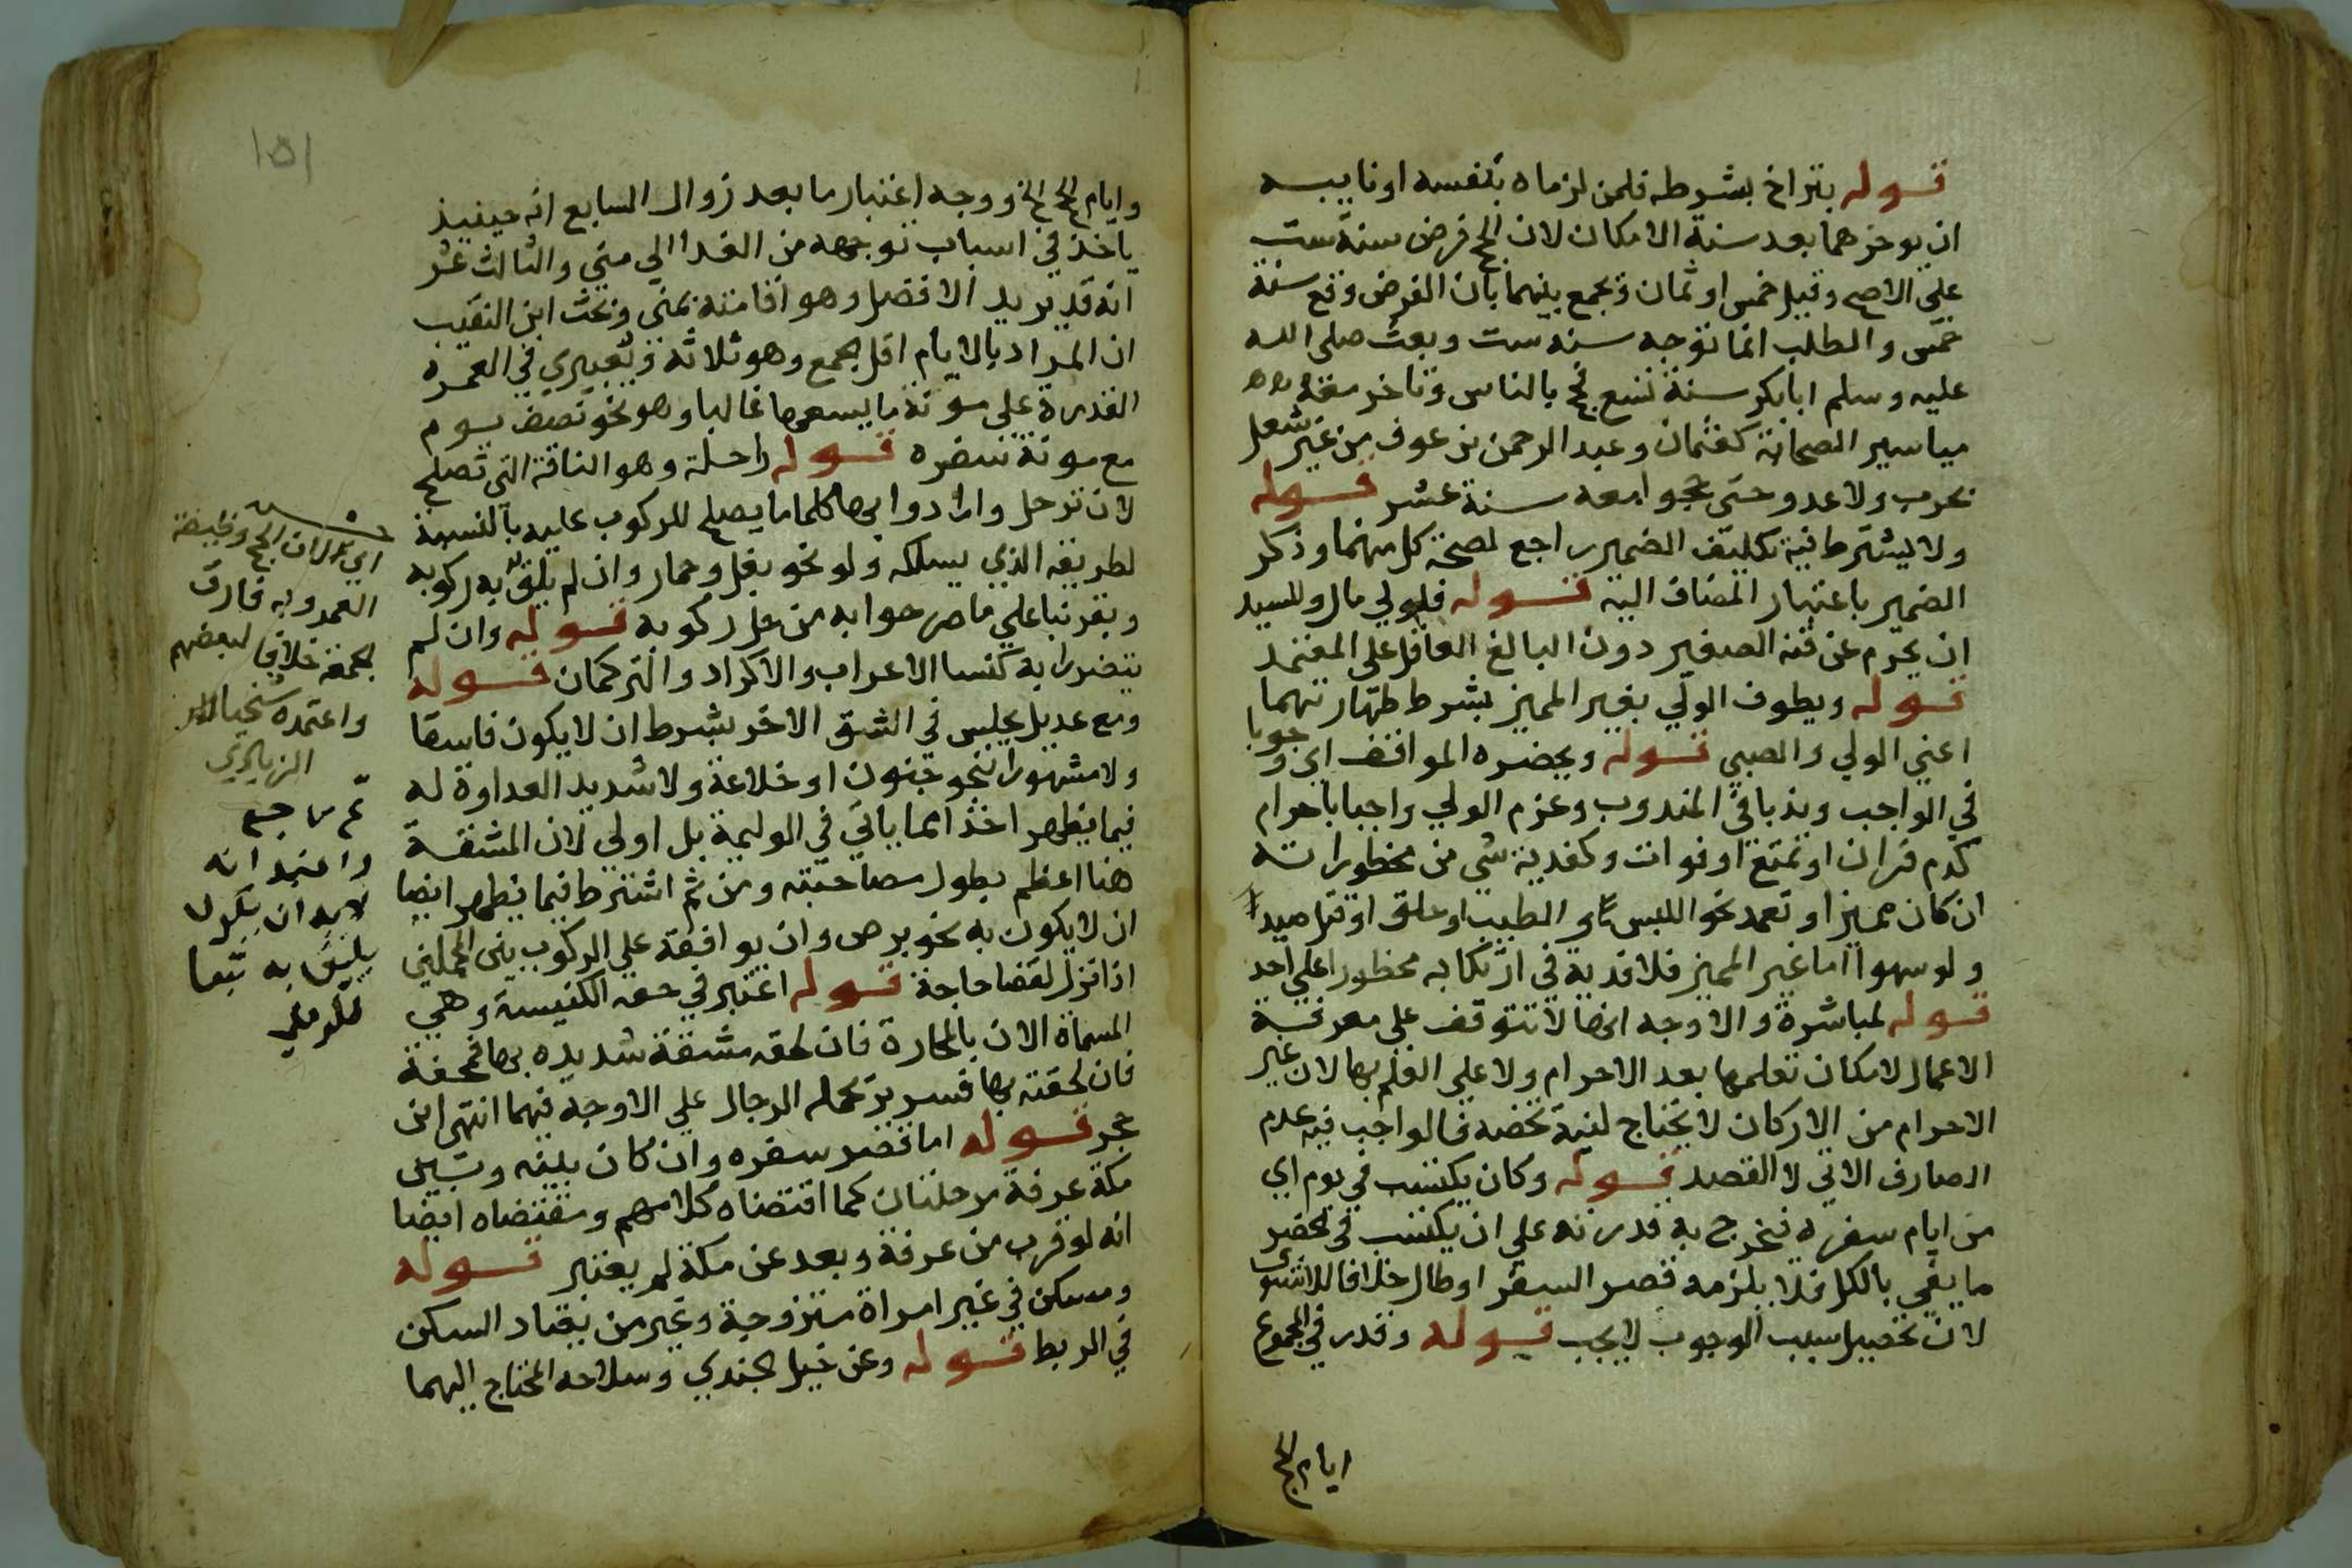 قوله بتراخ بشرطه فلمن لزماه بنفسه او نايبه
ان يوخرهما بعد سنة الامكان لان الحج فرض سنة ست
علي الاصح وقيل خمس او ثمان وجمع بينهما بان الفرض وقع سنة
خمس والطلب انما توجه سنة ست وبعث صلى الله
عليه وسلم ابابكر سنة تسع فحج بالناس وتاخر معه
مياسير الصحابة كعثمان وعبد الرحمن بن عوف من غير شغل
بحرب ولا عدو حتى حجوا معه سنة عشر قوله
ولا يشترط فيه تكليف الضمير راجع لصحة كل منهما وذكر
الضمير باعتبار المضاف اليه قوله فلولي مال وللسيد
ان يحرم عن قنه الصغير دون البالغ العاقل على المعتمد
قوله ويطوف الولي بغير المميز بشرط طهارتهما
اعني الولي والصبي قوله ويحضره المواقف اي وجوبا
في الواجب وندبا في المندوب وغرم الولي واجبا باحرام
كدم قران او تمتع او فوات وكفدية شي من محظوراته
ان كان مميزا وتعمد نحو اللبس او الطيب او حلق او قتل صيدا
ولو سهوا اما غير المميز فلا فدية في ارتكابه محظورا على احد
قوله لمباشرة والاوجه انها لا تتوقف على معرفة
الاعمال لامكان تعلمها بعد الاحرام ولا علي العلم بها لان غير
الاحرام من الاركان لا يحتاج لنية تخصه فالواجب فيه عدم
الصارف الاتي لا القصد قوله وكان يكتسب في يوم اي
من ايام سفره فيخرج به قدرته علي ان يكتسب في الحضر
ما يفي بالكل فلا يلزمه قصر السفر او طال خلافا للاسنوي
لان تحصيل سبب الوجوب لا يجب قوله وقدر في المجموع
ايام الحج
١٥١
وايام الحج الخ ووجه اعتبار ما بعد زوال السابع انه حينيذ
ياخذ في اسباب توجهه من الغد الي مني والثالث عشر
انه قد يريد الافضل وهو اقامته بمني وبحث ابن النقيب
ان المراد بالايام اقل الجمع وهو ثلاثة وتعبيري في العمرة
القدرة علي مونة ما يسعها غالبا وهو نحو نصف يوم
مع مونة سفره قوله راحلة وهو الناقة التي تصلح
لان ترحل وارادوا بها كلما يصلح للركوب عليه بالنسبة
لطريقه الذي يسلكه ولو نحو بغل وحمار وان لم يلق به ركوبه
وبقر بنا علي ما صرحوا به من حل ركوبه قوله وان لم
يتضرر به كنسا الاعراب والاكراد والتركمان قوله
ومع عديل يجلس في الشق الاخر بشرط ان لا يكون فاسقا
ولا مشهورا بنحو جنون او خلاعة ولا شديد العداوة له
فيما يظهر اخذا مما ياتي في الوليمة بل اولي لان المشقة
هنا اعظم بطول مصاحبته ومن ثم اشترط فيما يظهر ايضا
ان لا يكون به نحو برص وان يوافقه علي الركوب بين المحملين
اذا نزل لقضا حاجة قوله اعتبر في حقه الكنيسة وهي
المسماة الان بالمحارة فان لحقه مشقة شديده بها فمحفة
فان لحقته بها فسرير تحمله الرجال علي الاوجه فيهما انتهى ابن
حجر قوله اما قصر سفره وان كان بينه وبين
مكة عرفة مرحلتان كما اقتضاه كلامهم ومقتضاه ايضا
انه لو قرب من عرفة وبعد عن مكة لم يعتبر قوله
ومسكن في غير امراة متزوجة وغير من يعتاد السكن
في الربط قوله وعن خيل الجندي وسلاحه المحتاج اليهما
اي لان الحج وظيفة
العمر وبه فارق
الجمعة خلافا لبعضهم
واعتمده شيخنا
الزيادي
واعتمد انه
لابد ان يكون
يليق به تبعا
للرملي